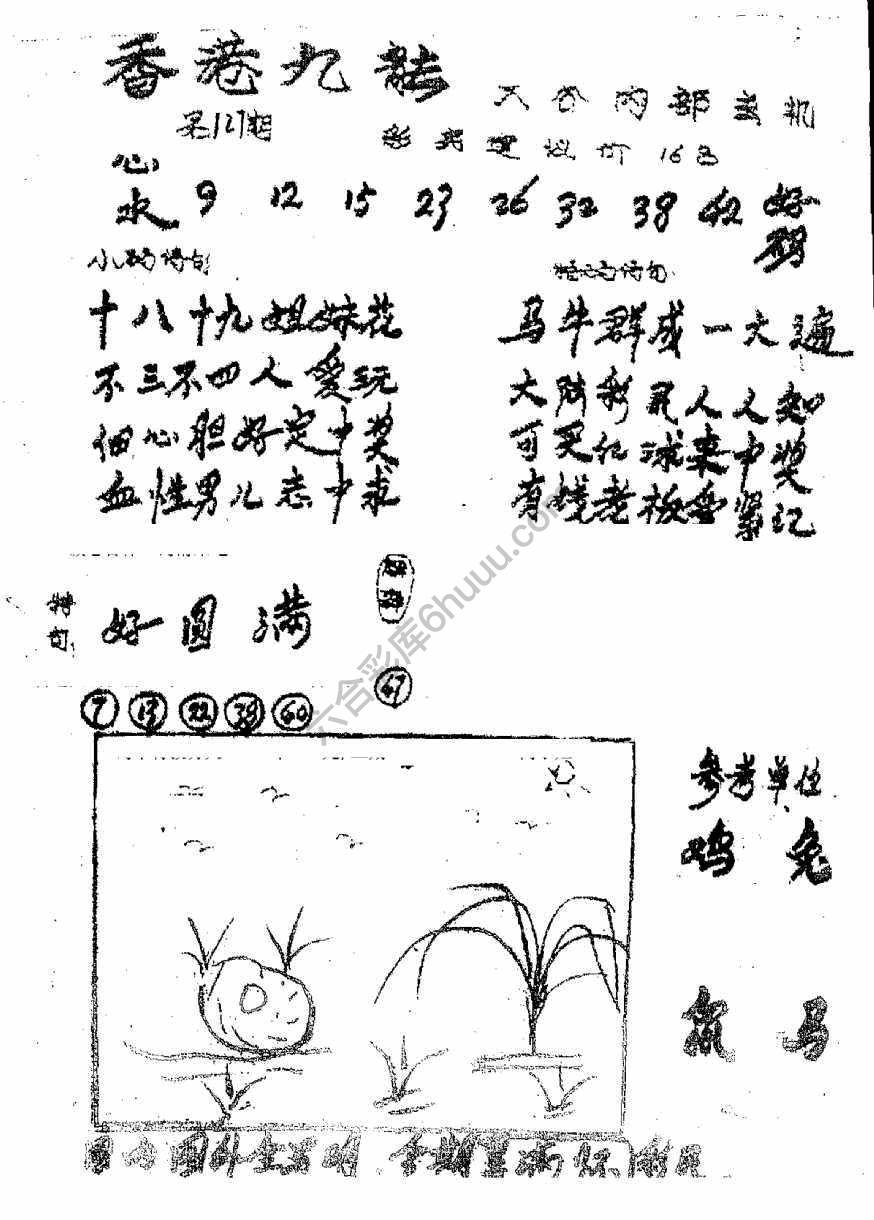 香港九龙
第127期
六合内部玄机
彩民建议价 16
心水 9 12 15 23 26 32 38 42 好码
小码诗句
十八十九姐妹花
不三不四人爱玩
细心胆好定中奖
血性男儿志中求
特码诗句
马牛群成一大遍
大陆彩民人人知
可买红球来中奖
有钱老板要紧记
特句
好圆满
7 19 22 38 60
47
参考单位
鸡 兔
鼠 马
六合彩库6huuu.com